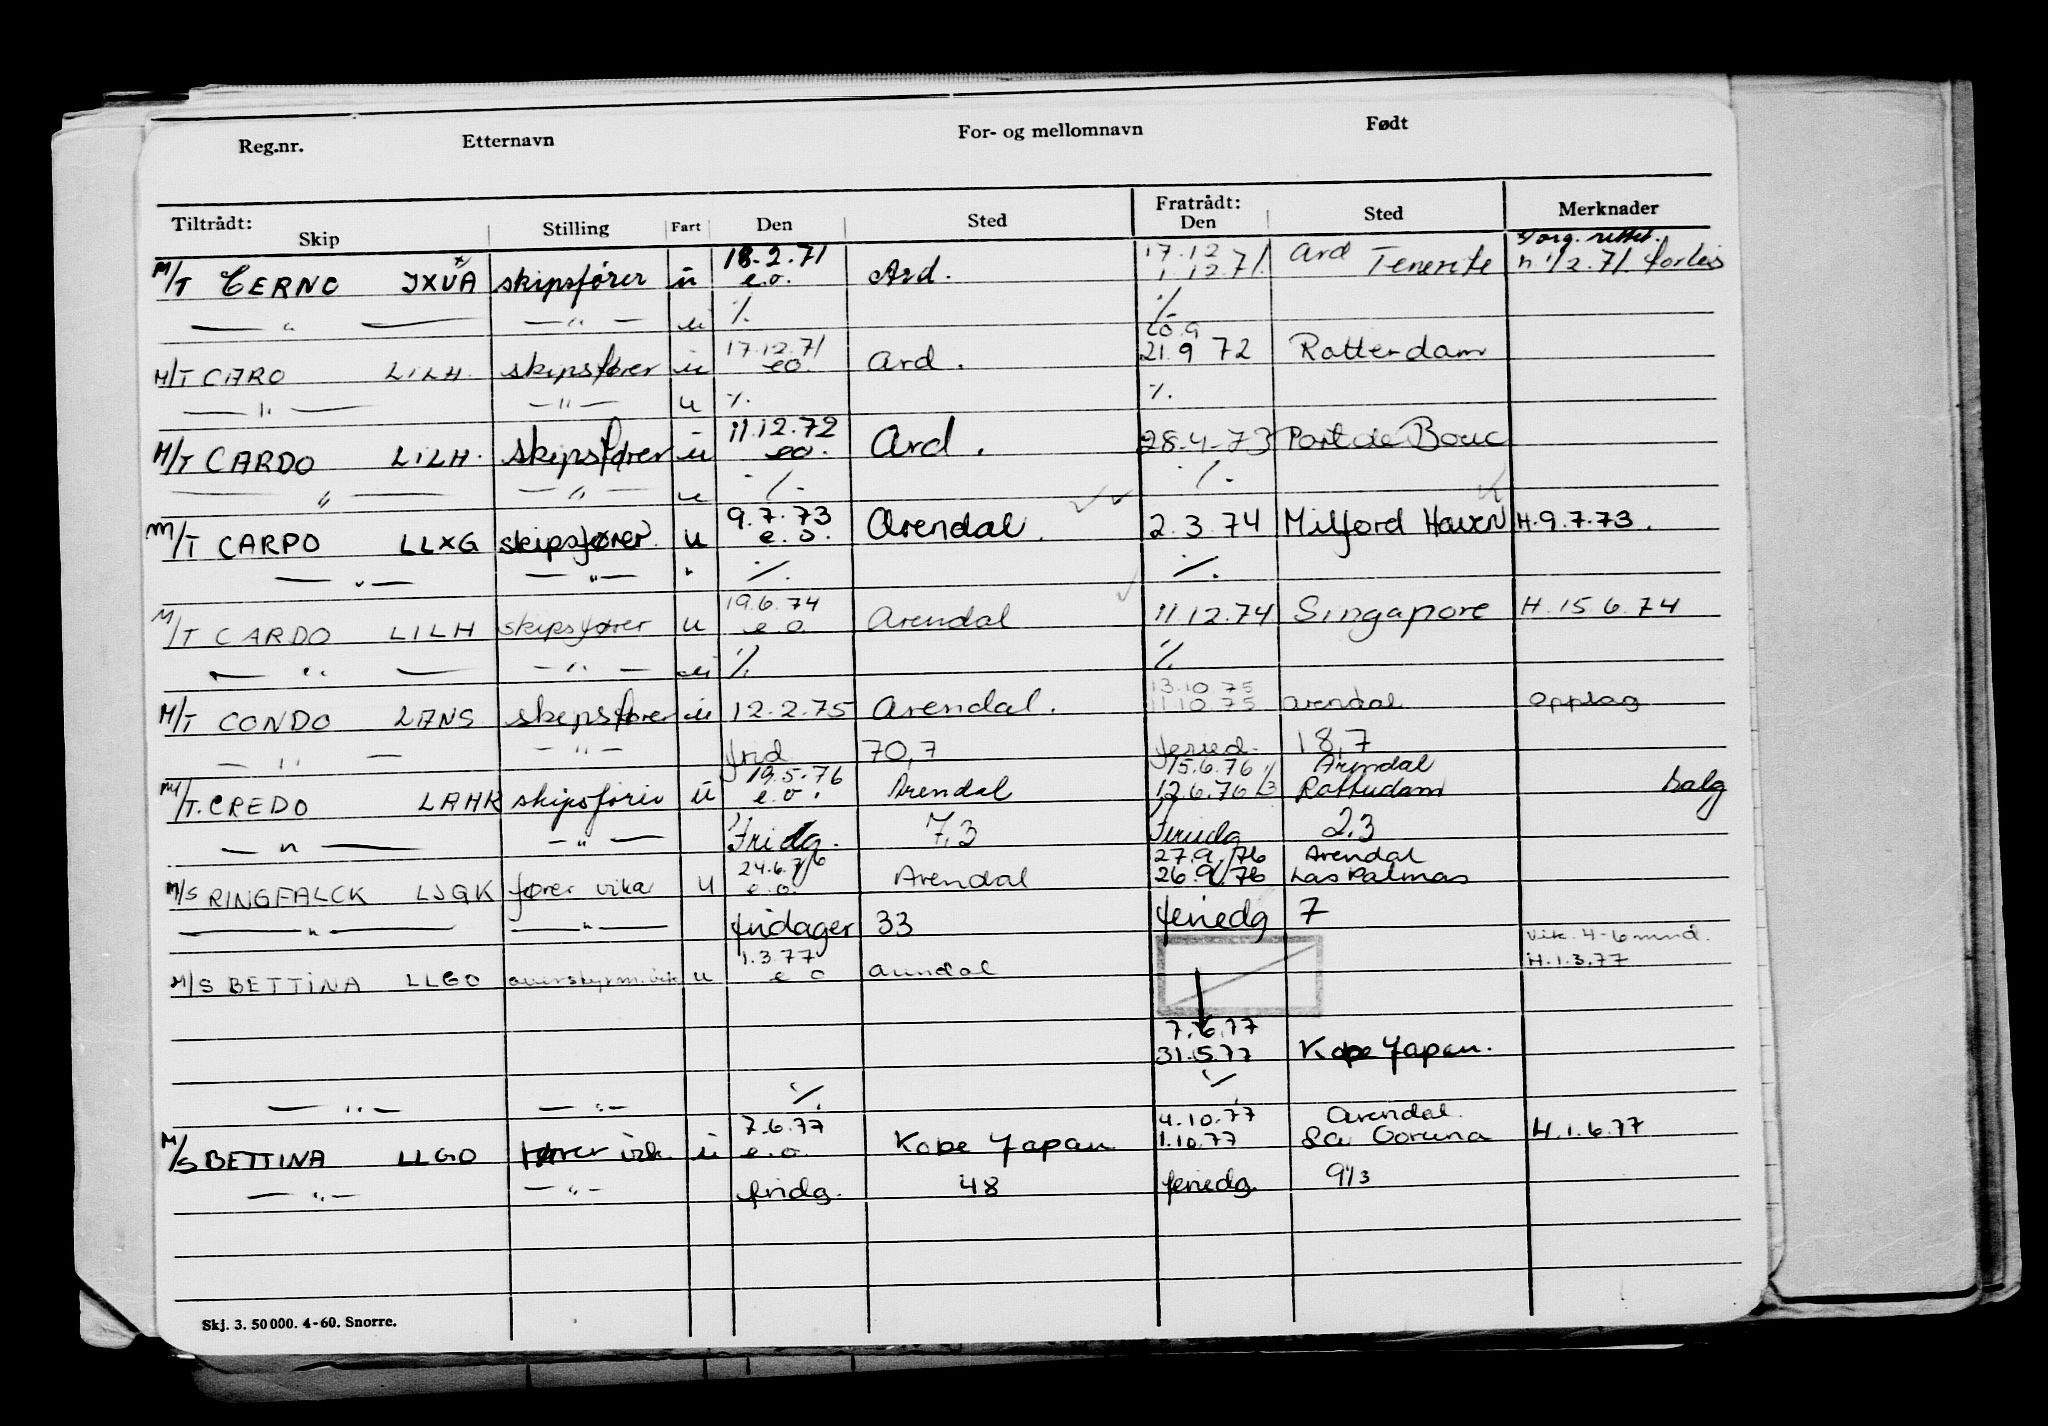 Reg.nr. Etternavn For- og mellomnavn Født
Tiltrådt: Fratrådt:
Skip Stilling Fart Den Sted Den Sted Merknader
18.2.71 17.12 Ard x/org. rettet.
M/T CERNO JXUA x) skipsfører u e.o. Ard. 1.12.71. Tenerife
— " — — " — u ·/. ·/.
17.12.71 20.9
M/T CARO LILH. skipsfører u eo. Ard. 21.9 72 Rotterdam
— " — — " — u ·/. ·/.
11.12.72
M/T CARDO LILH. skipsfører u eo. Ard. 28.4.73 Port de Bouc
— " — — " — u ·/. ·/.
9.7.73
M/T CARPO LLXG skipsfører u e.o. Arendal. 2.3.74 Milford Haven H.9.7.73.
— " — — " — " ·/. ·/.
19.6.74
M/T CARDO LILH skipsfører u e.o. Arendal 11.12.74 Singapore H.15.6.74
— " — — " — u ·/. ·/.
13.10.75
M/T CONDO LANS skipsfører u 12.2.75 Arendal. 11.10.75 Arendal Opplag
— " — — " — frid 70,7 feried. 18,7
19.5.76 15.6.76 Arendal
M/T. CREDO LAHK skipsfører u e.o. Arendal 12.6.76 Rotterdam salg
— " — — " — Fridg. 7,3 Feriedg 2,3
24.6.76 27.9.76 Arendal
M/S RINGFALCK LJGK fører vika u e.o. Arendal 26.9.76 Las Palmas
— " — — " — fridager 33 feriedg 7
1.3.77 vik. 4-6 mnd.
M/S BETTINA LLGO overstyrm. vik. u e o Arendal H.1.3.77
7.6.77
31.5.77 Kobe Japan.
— " — — " — ·/. ·/.
7.6.77 4.10.77 Arendal.
M/S BETTINA LLGO fører vik. u e.o. Kobe Japan 1.10.77 La Coruna H.1.6.77
— " — — " — fridg. 48 feriedg. 9 1/3
Skj. 3. 50 000. 4-60. Snorre.